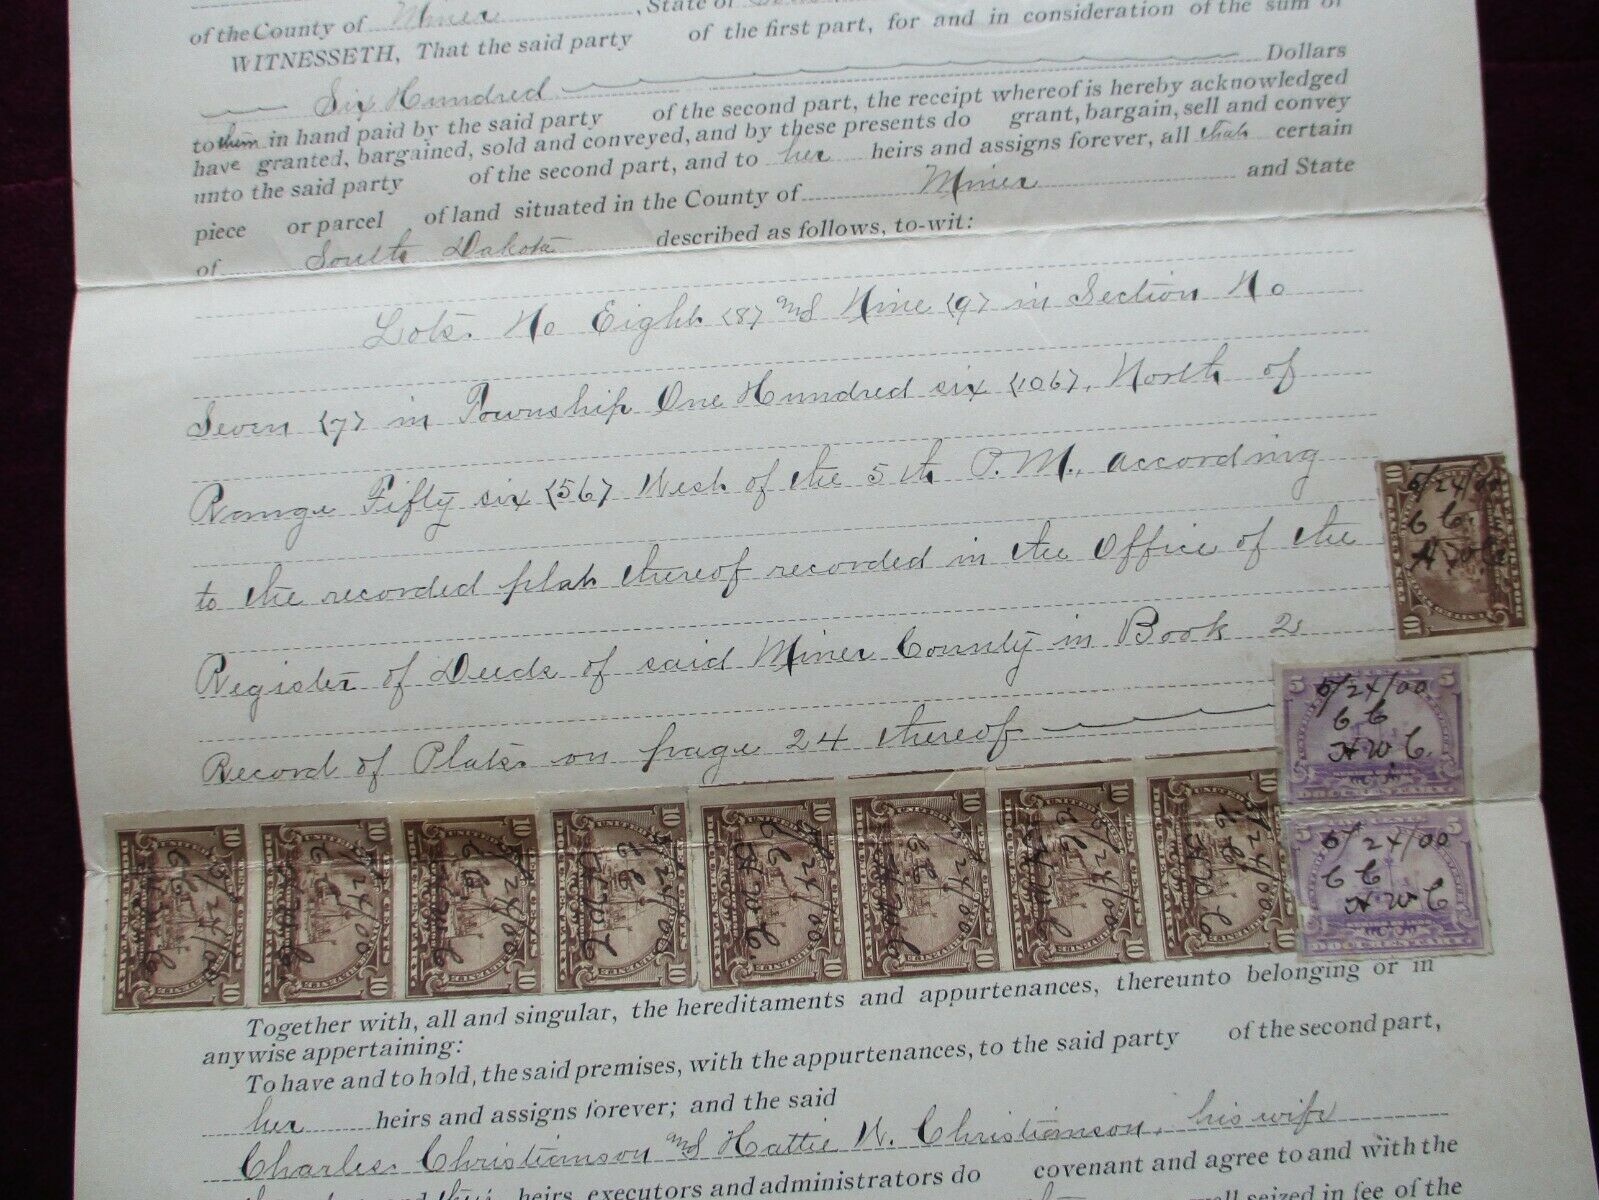 of the County of Miner, State of
WITNESSETH, That the said party of the first part, for and in consideration of the sum of
Six Hundred Dollars
to them in hand paid by the said party of the second part, the receipt whereof is hereby acknowledged
have granted, bargained, sold and conveyed, and by these presents do grant, bargain, sell and convey
unto the said party of the second part, and to her heirs and assigns forever, all that certain
piece or parcel of land situated in the County of Miner and State
of South Dakota described as follows, to-wit:
Lots No Eight <8> and Nine <9> in Section No
Seven <7> in Township One Hundred six <106>, North of
Range Fifty six <56> West of the 5th P.M., according
to the recorded plat thereof recorded in the Office of the
Register of Deeds of said Miner County in Book 2
Record of Plats on page 24 thereof
10 10
5/24/00
C C
H W C
5 5
5/24/00
C C
H W C
DOCUMENTARY
5 5
5/24/00
C C
H W C
DOCUMENTARY
10 10
5/24/00
10 10
5/24/00
10 10
5/24/00
10 10
5/24/00
10 10
5/24/00
10 10
5/24/00
10 10
5/24/00
10 10
5/24/00
Together with, all and singular, the hereditaments and appurtenances, thereunto belonging or in
anywise appertaining:
To have and to hold, the said premises, with the appurtenances, to the said party of the second part,
her heirs and assigns forever; and the said
Charles Christianson and Hattie W. Christianson, his wife
heirs, executors and administrators do covenant and agree to and with the
well seized in fee of the